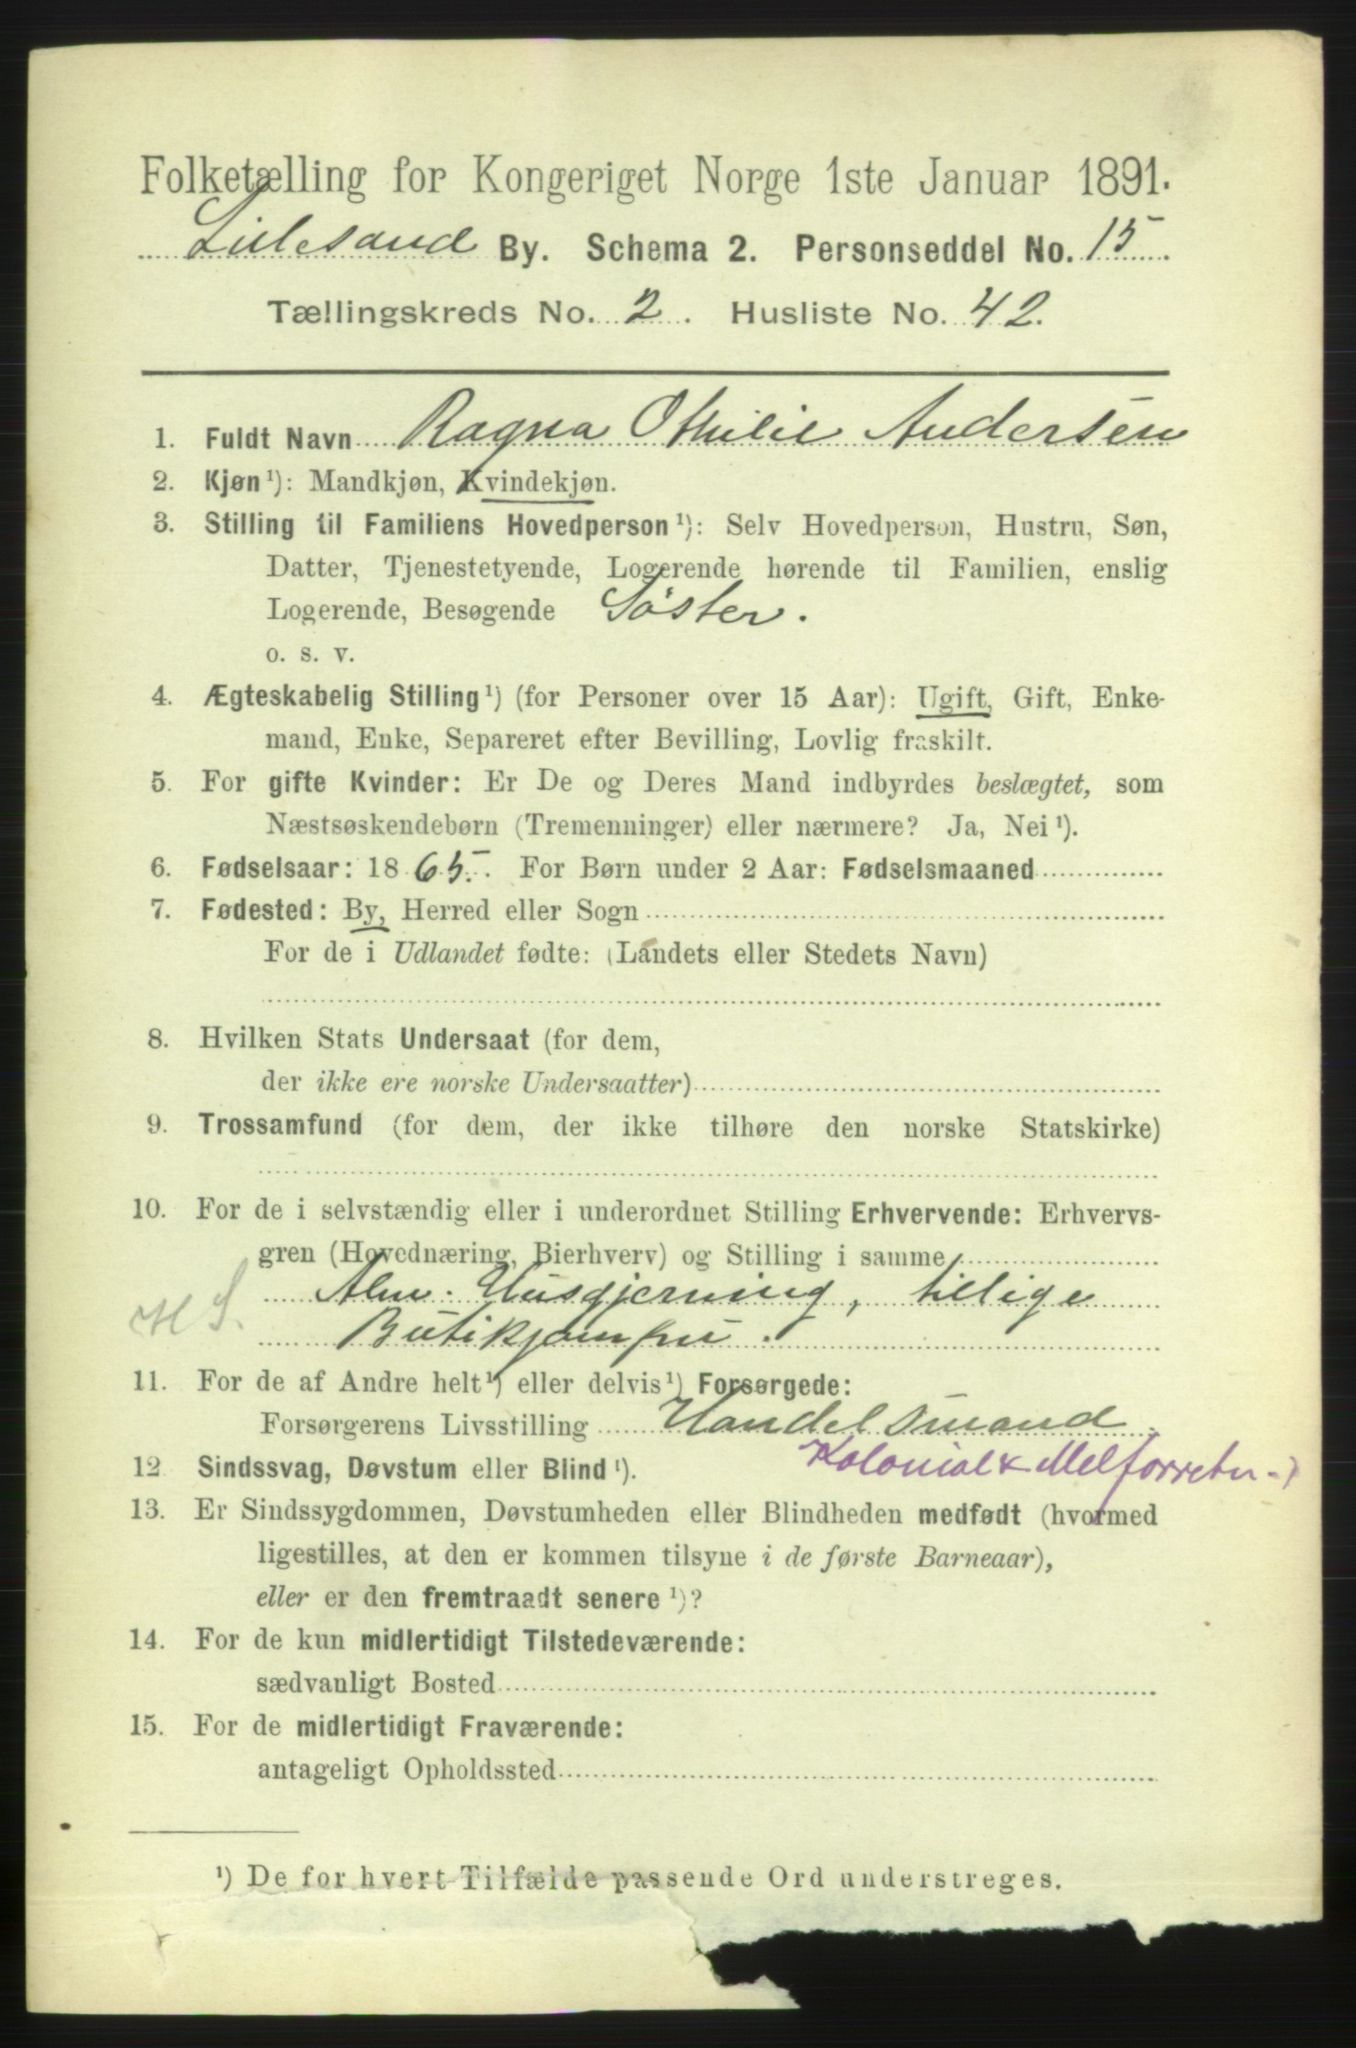 Folketælling for Kongeriget Norge 1ste Januar 1891.
Lillesand By. Schema 2. Personseddel No. 15
Tællingskreds No. 2. Husliste No. 42.
1. Fuldt Navn Ragna Othilie Andersen
2. Kjøn ¹): Mandkjøn, Kvindekjøn.
3. Stilling til Familiens Hovedperson ¹): Selv Hovedperson, Hustru, Søn,
Datter, Tjenestetyende, Logerende hørende til Familien, enslig
Logerende, Besøgende Søster.
o. s. v.
4. Ægteskabelig Stilling ¹) (for Personer over 15 Aar): Ugift, Gift, Enke-
mand, Enke, Separeret efter Bevilling, Lovlig fraskilt.
5. For gifte Kvinder: Er De og Deres Mand indbyrdes beslægtet, som
Næstsøskendebørn (Tremenninger) eller nærmere? Ja, Nei ¹).
6. Fødselsaar: 1865. For Børn under 2 Aar: Fødselsmaaned
7. Fødested: By, Herred eller Sogn
For de i Udlandet fødte: (Landets eller Stedets Navn)
8. Hvilken Stats Undersaat (for dem,
der ikke ere norske Undersaatter)
9. Trossamfund (for dem, der ikke tilhøre den norske Statskirke)
10. For de i selvstændig eller i underordnet Stilling Erhvervende: Erhvervs-
gren (Hovednæring, Bierhverv) og Stilling i samme
Alm. Husgjerning, tillige
HS. Butikjomfru.
11. For de af Andre helt ¹) eller delvis ¹) Forsørgede:
Forsørgerens Livsstilling Handelsmand.
Kolonial & Melforretn-)
12. Sindssvag, Døvstum eller Blind ¹).
13. Er Sindssygdommen, Døvstumheden eller Blindheden medfødt (hvormed
ligestilles, at den er kommen tilsyne i de første Barneaar),
eller er den fremtraadt senere ¹)?
14. For de kun midlertidigt Tilstedeværende:
sædvanligt Bosted
15. For de midlertidigt Fraværende:
antageligt Opholdssted
¹) De for hvert Tilfælde passende Ord understreges.